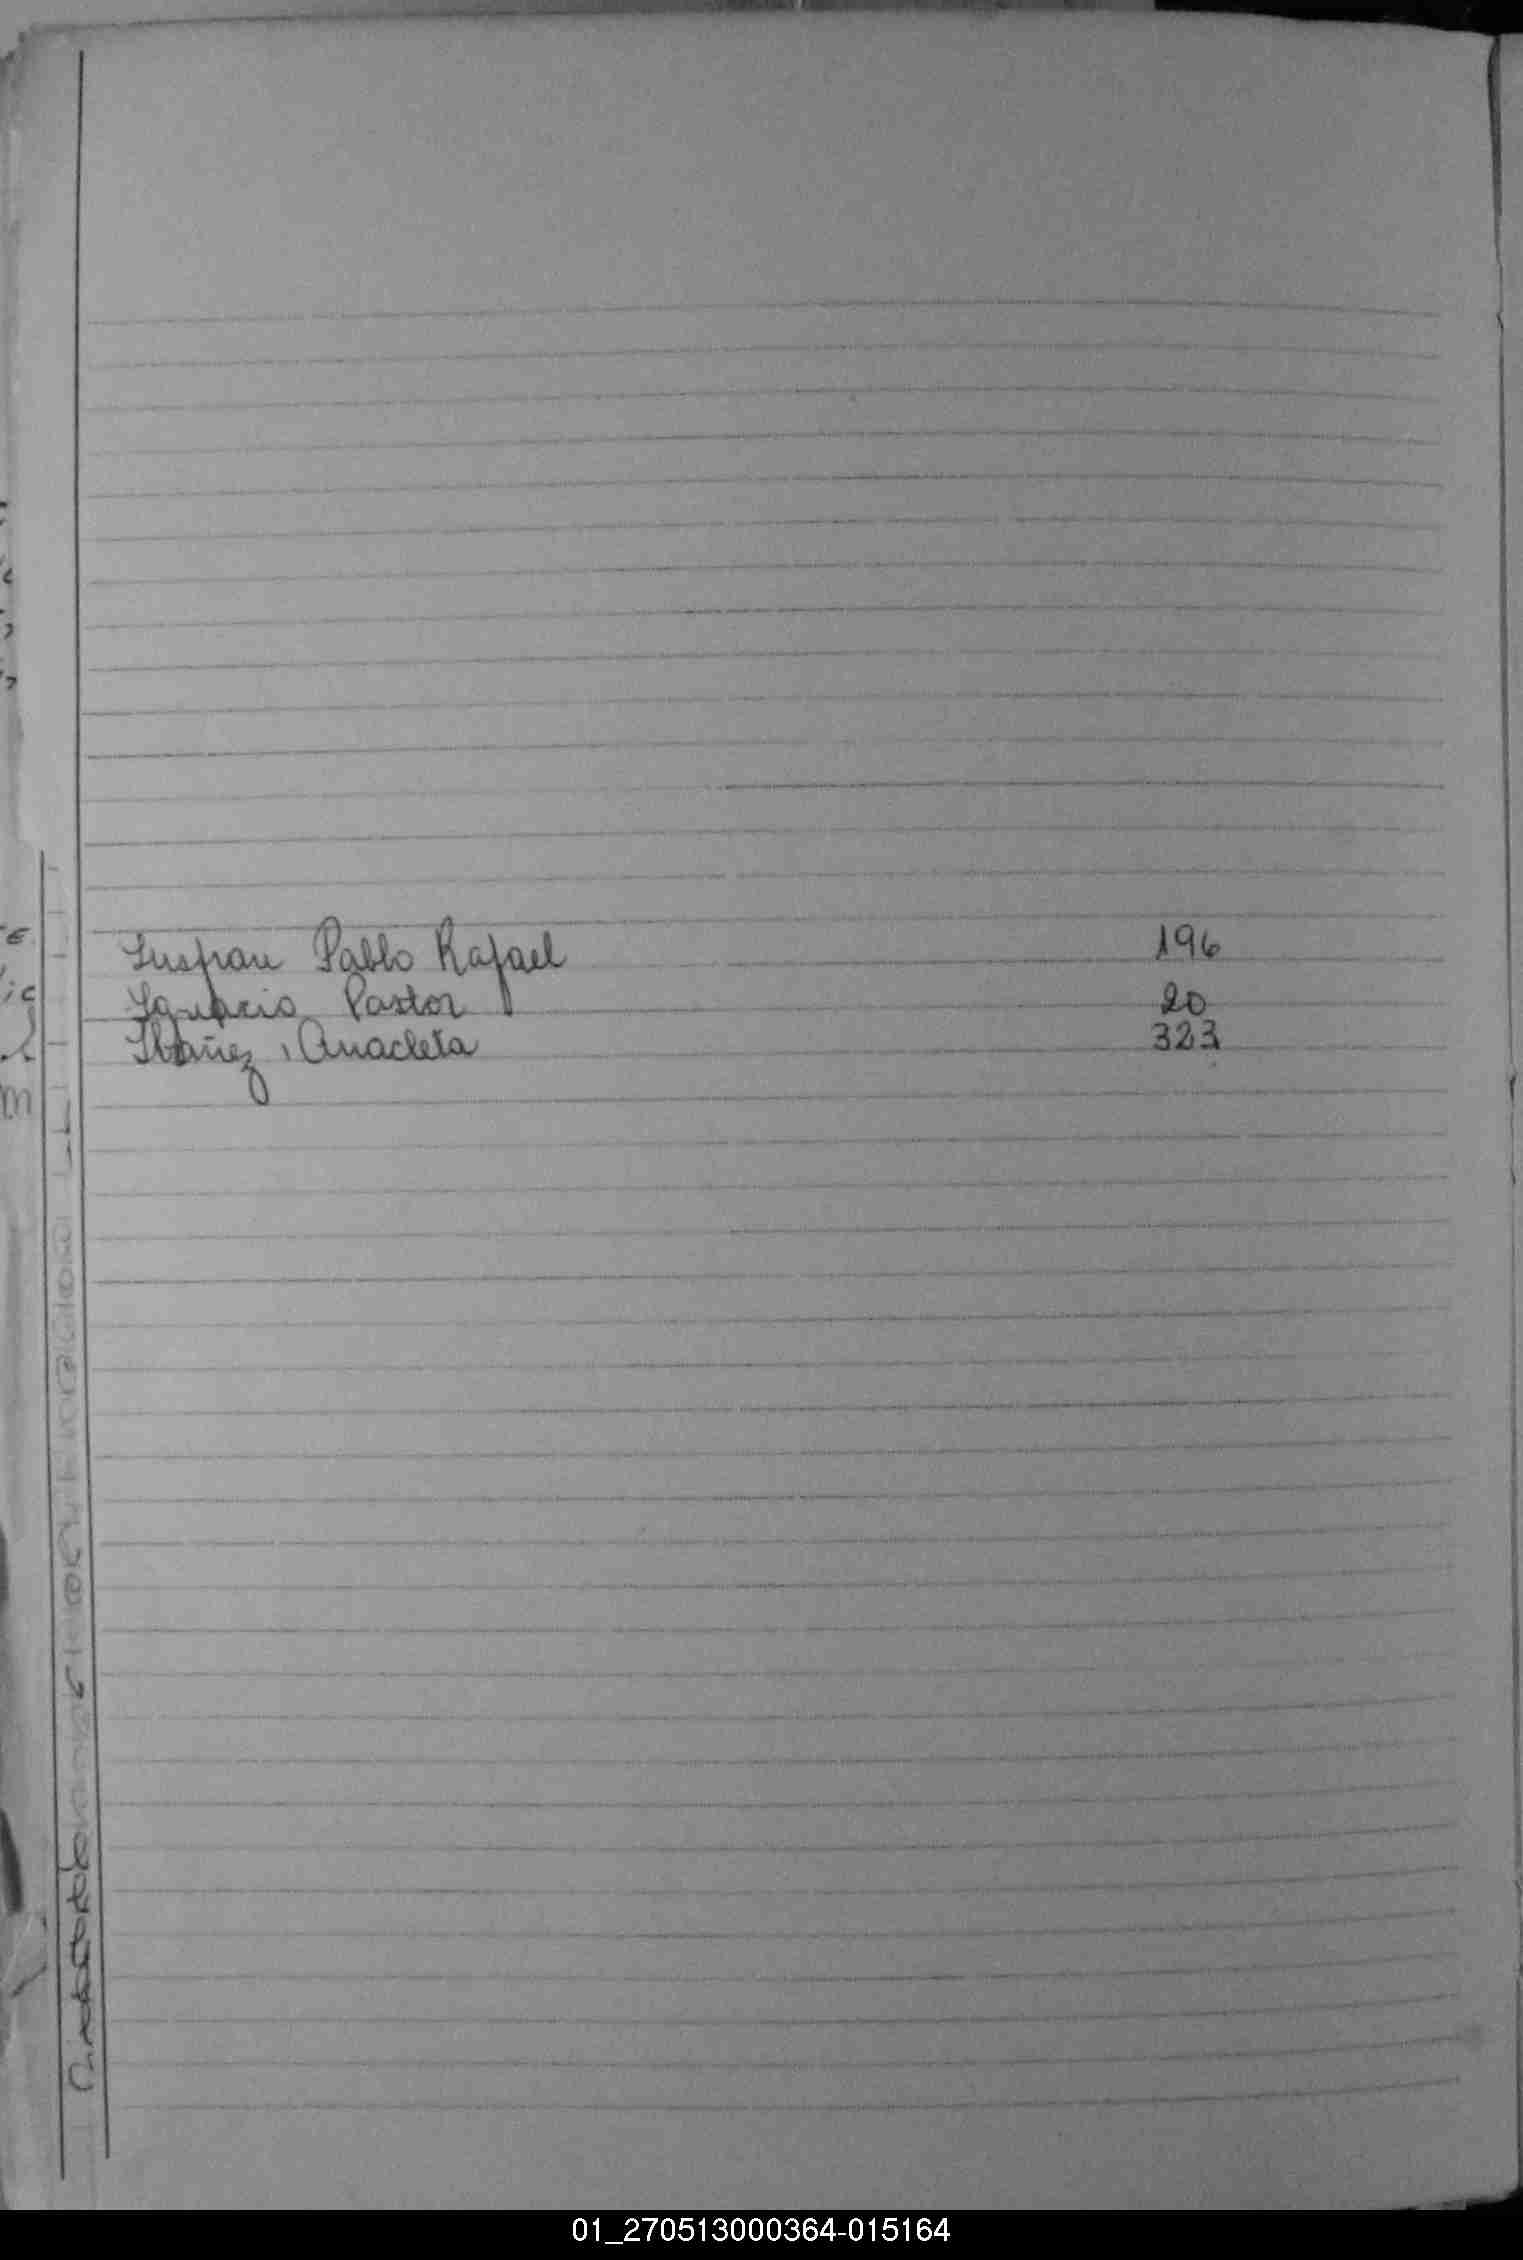 Insfran Pablo Rafael 196
Ignacio Pastor 20
Ibañez, Anacleta 323
01_270513000364-015164